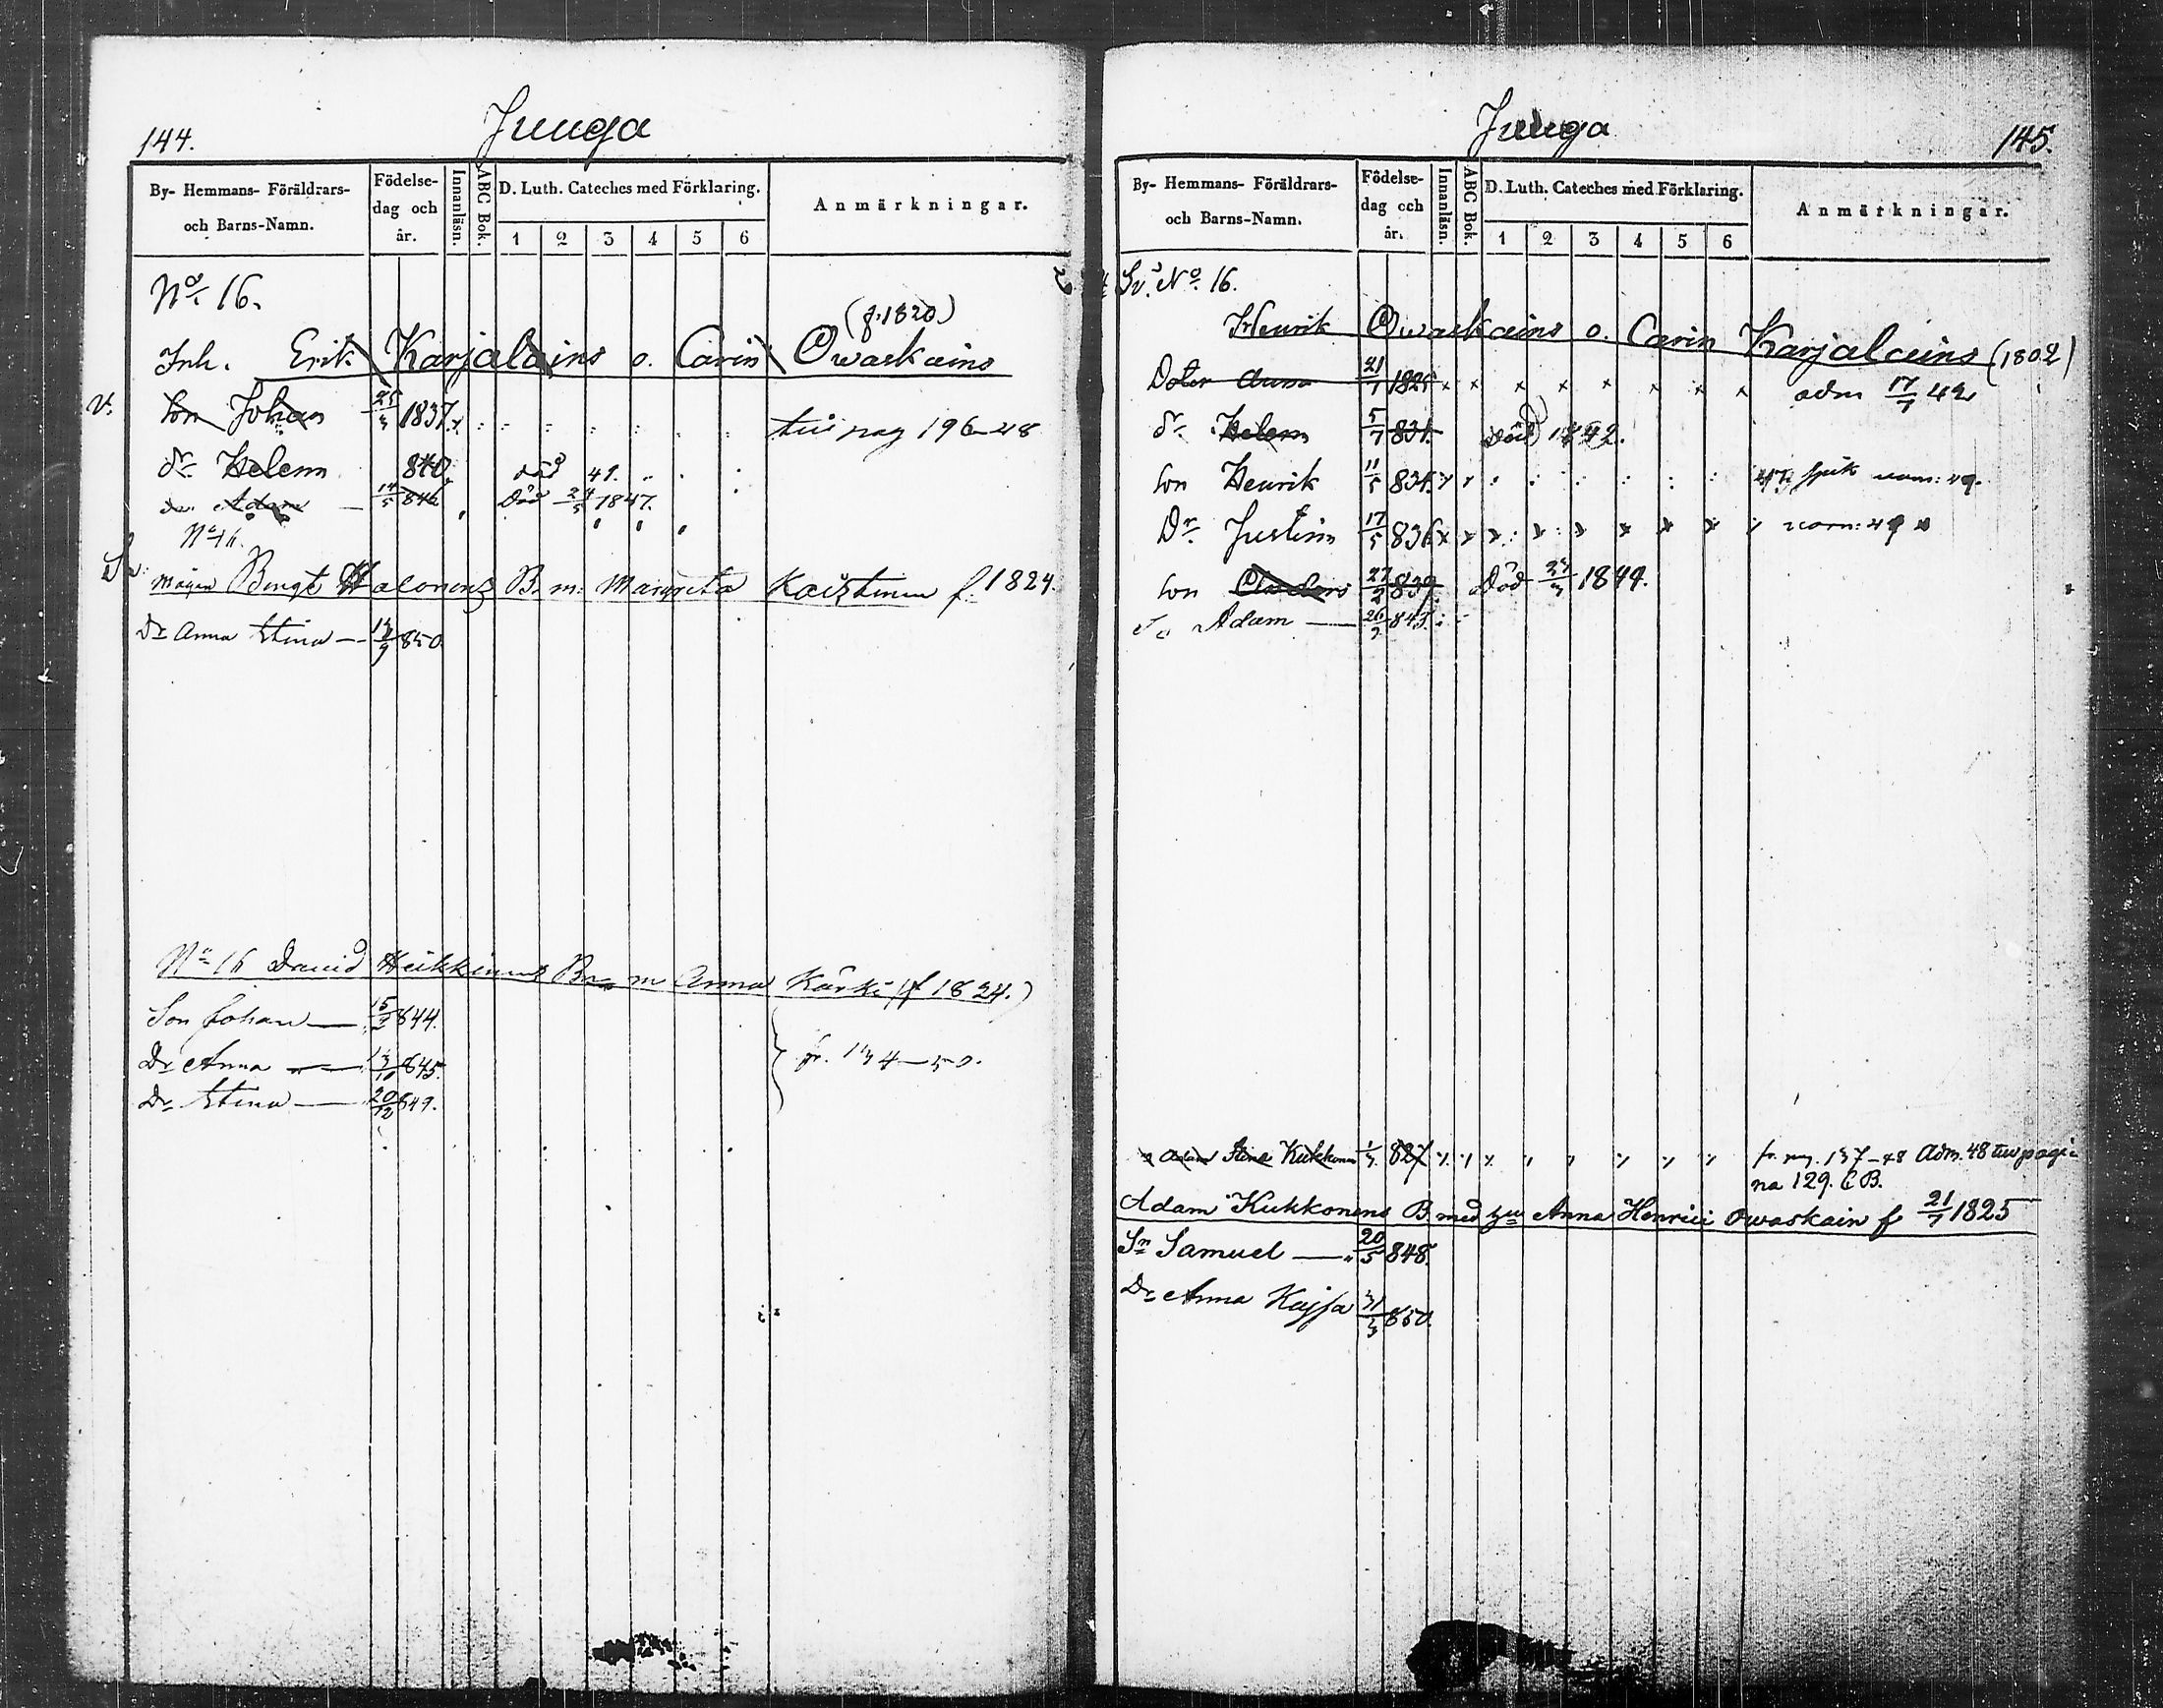 144.
Juuga
By- Hemmans- Föräldrars-
och Barns-Namn.
Födelse-
dag och
år.
Innanläsn.
ABC Bok.
D. Luth. Cateches med Förklaring.
1 2 3 4 5 6
Anmärkningar.
No. 16.
(f. 1820)
Inh. Erik Karjalains o. Carin Owaskains
v. Son Johan 25/3 1837. till pag 196-48
Dr Helena 840. död 41.
Adam 14/5 846 Död 24/5 1847.
No 16.
Mågen Bengt Halonens B. m. Margreta Kaistinen f. 1824.
Dr Anna Stina 850.
No 16 David Heikkinens B m Anna Kärki (f 1824.)
Son Johan 15/2 844.
Dr Anna 845.
fr. 134-50.
Dr Stina 20/12 849.
Juuga
145.
By- Hemmans- Föräldrars-
och Barns-Namn.
Födelse-
dag och
år.
Innanläsn.
ABC Bok.
D. Luth. Cateches med Förklaring.
1 2 3 4 5 6
Anmärkningar.
Sv. No. 16.
Henrik Owaskains o. Carin Karjalains (1802)
Doter Anna 21/7 1825 x x x x x x x x adm 17/7 42
Dr Helena 5/7 831. död 1842.
Son Henrik 11/5 834.
Dr Justina 17/5 836
Son Anders 27/2 839. Död 23/3 1844.
So Adam 26/9 843.
Stina Kukkonen 827 fr. pag. 137-48 Adm. 48 till pagi-
na 129. C B.
Adam Kukkonens B med Anna Henrici Owaskain f 21/7 1825
Sn Samuel 20/5 848.
Dr Anna Kajsa 31/3 850.